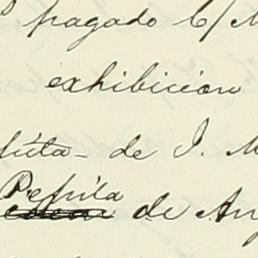 pagado b/ M
exhibicion
de J. M
Pepita
de An